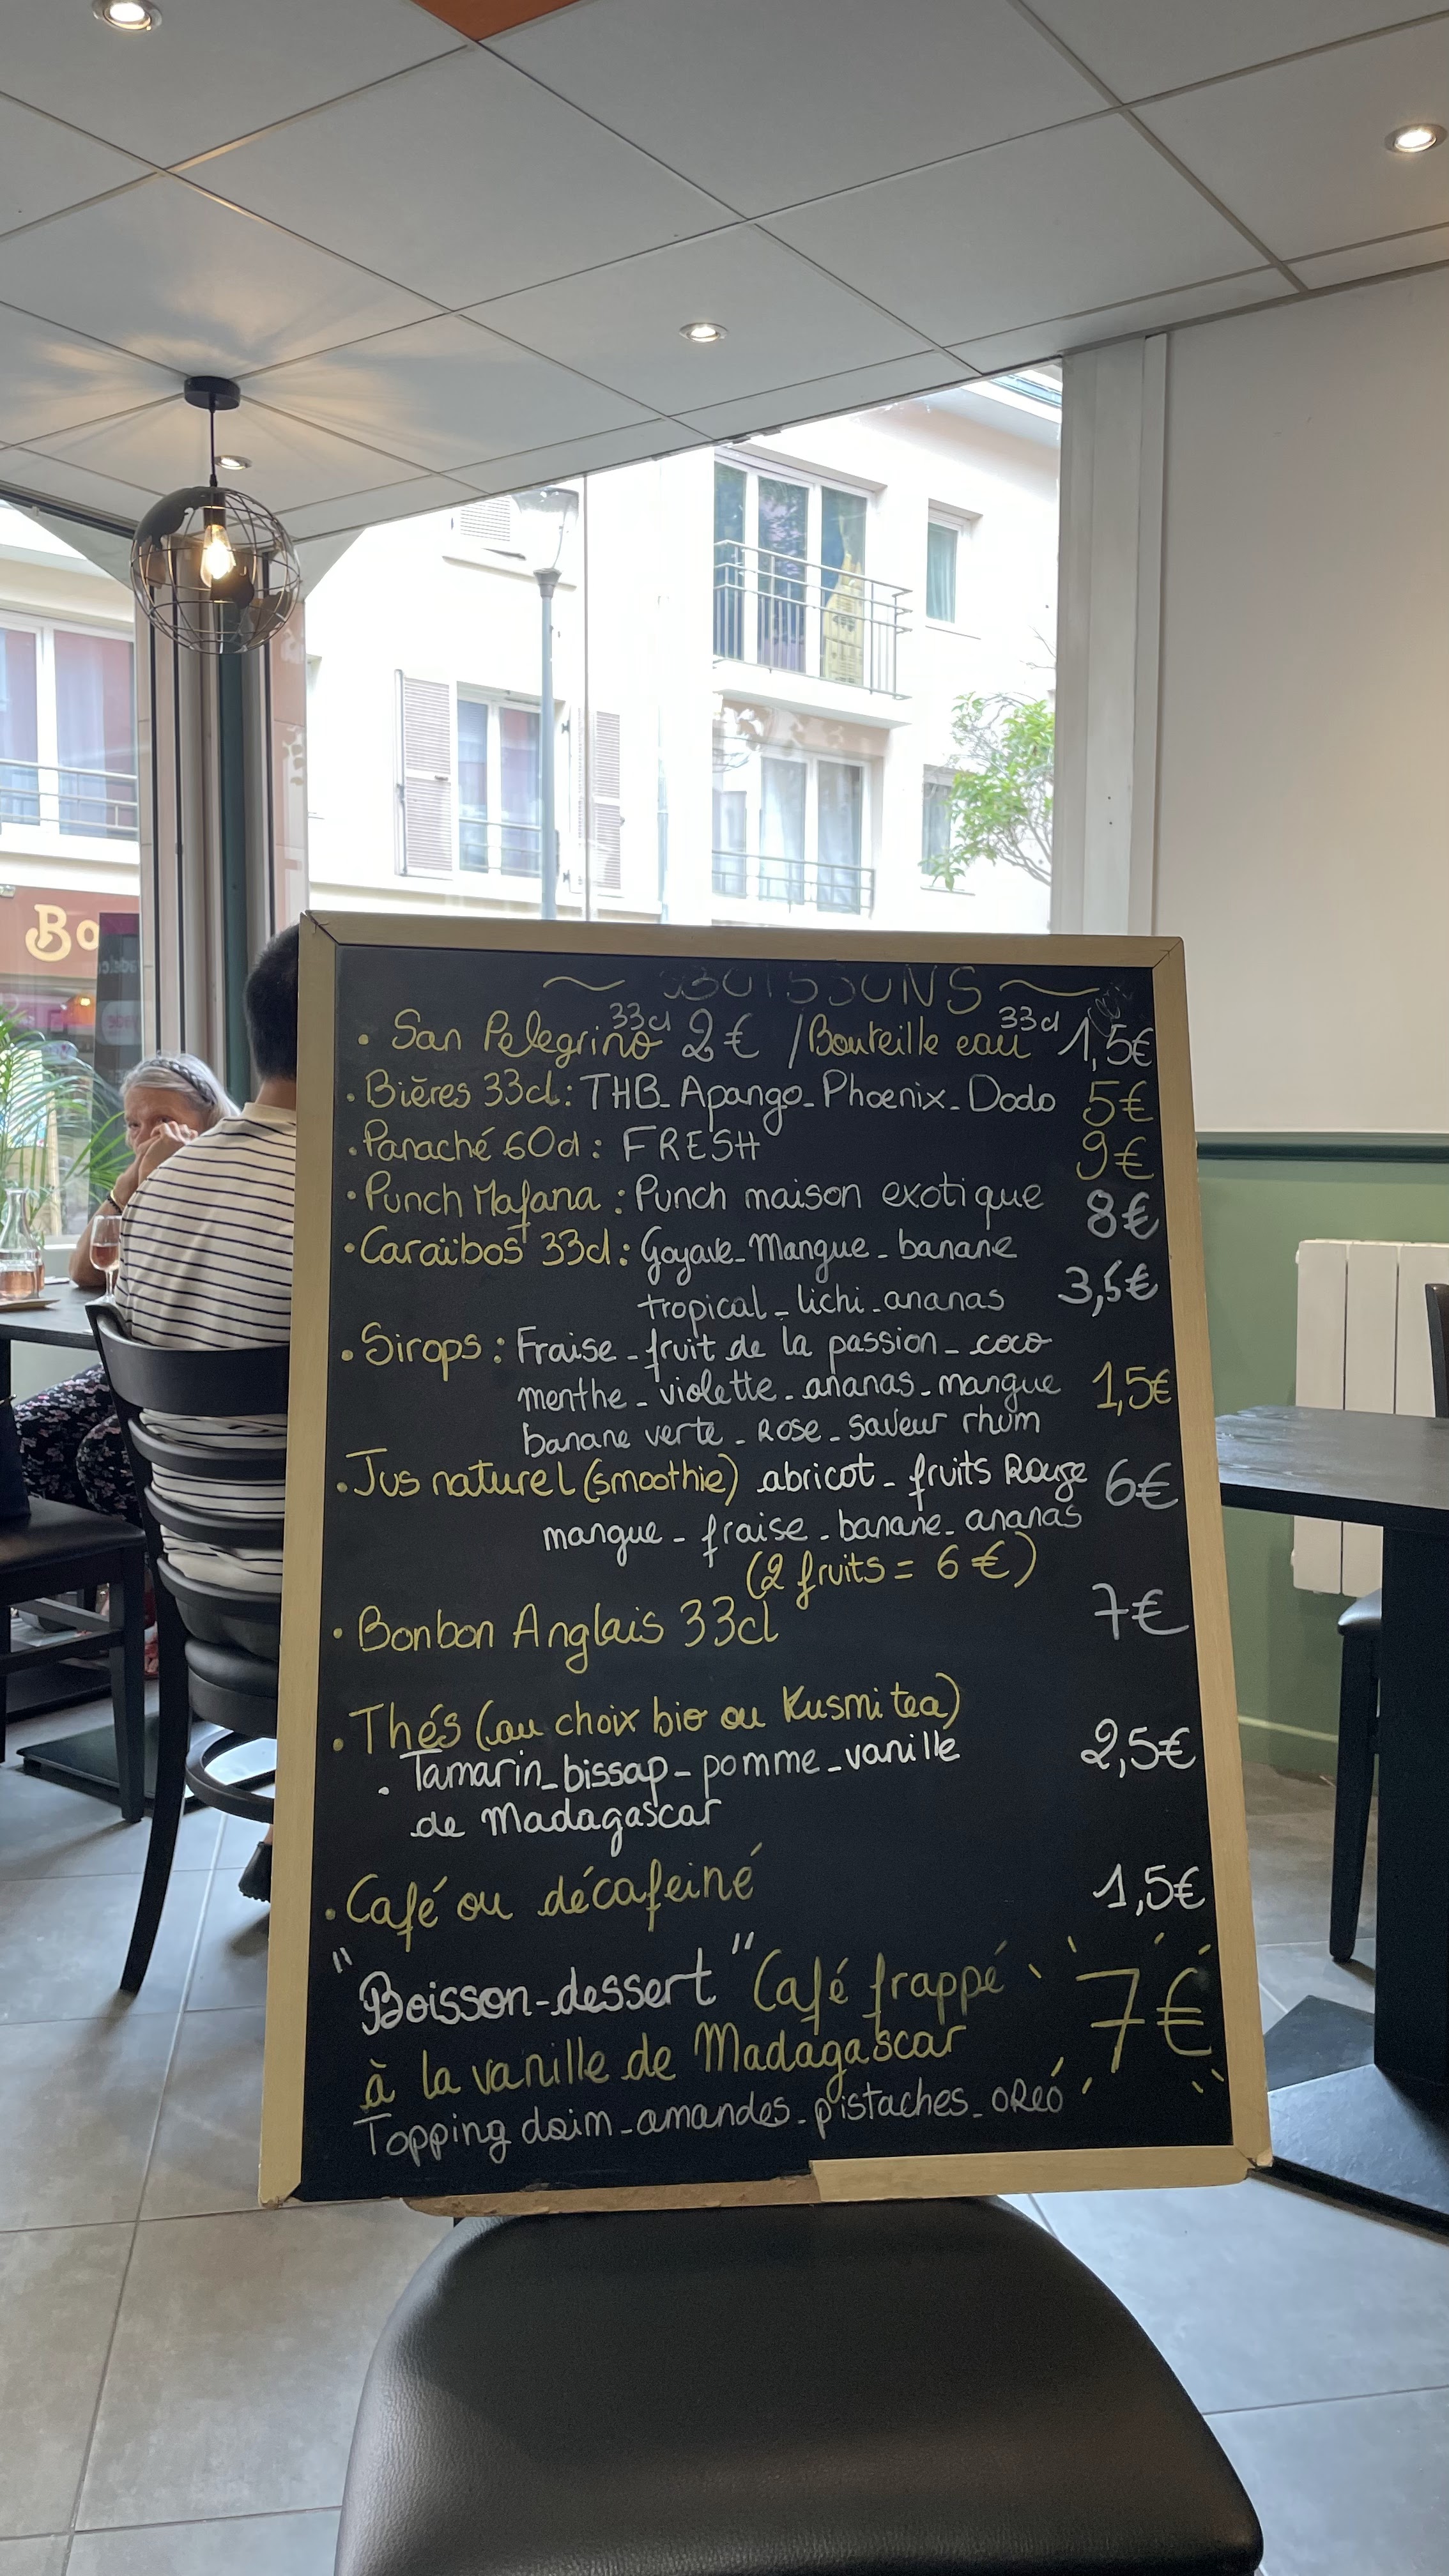 Bo
~ BOISSONS ~
• San Pelegrino 33cl 2€ / Bouteille eau 33cl 1,5€
• Bières 33cl: THB_Apango_Phoenix_Dodo 5€
• Panaché 60cl: FRESH 9€
• Punch Mafana: Punch maison exotique 8€
• Caraïbos 33cl: Goyave_Mangue_banane
tropical_lichi_ananas 3,5€
• Sirops: Fraise_fruit de la passion_coco
menthe_violette_ananas_mangue 1,5€
banane verte_Rose_saveur rhum
• Jus naturel (smoothie) abricot_fruits Rouge 6€
mangue_fraise_banane_ananas
(2 fruits = 6€)
• Bonbon Anglais 33cl 7€
• Thés (au choix bio ou Kusmi tea)
• Tamarin_bissap_pomme_vanille 2,5€
de Madagascar
• Café ou décafeiné 1,5€
"Boisson-dessert" Café frappé 7€
à la vanille de Madagascar
Topping daim_amandes_pistaches_oReo